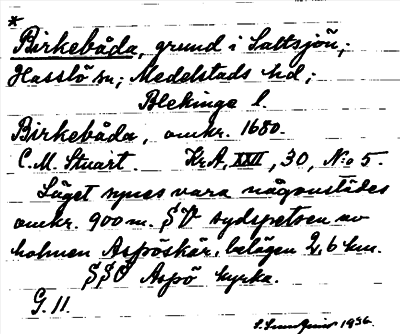 *
Birkebåda, grund i Saltsjön;
Hasslö sn; Medelstads hd;
Blekinge l.
Birkebåda, omkr. 1680.
C. M. Stuart. KrA, XXII, 30, No 5.
Läget synes vara någonstädes
omkr. 900 m. SV sydspetsen av
holmen Aspöskär, belägen 2,6 km.
SSO Aspö kyrka.
G. 11.
1936.